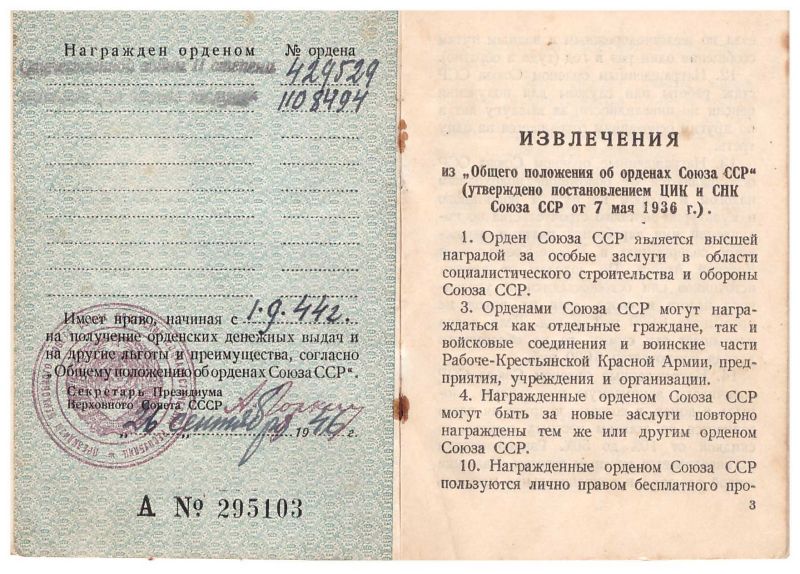 Награжден орденом № ордена
Отечественной войны II степени 429529
1108494
Имеет право, начиная с 1.9.44г.
на получение орденских денежных выдач и
на другие льготы и преимущества, согласно
„Общему положению об орденах Союза ССР“.
Секретарь Президиума
Верховного Совета СССР
„26 сентября 1946 г.
А № 295103
ИЗВЛЕЧЕНИЯ
из „Общего положения об орденах Союза ССР“
(утверждено постановлением ЦИК и СНК
Союза ССР от 7 мая 1936 г.).
1. Орден Союза ССР является высшей
наградой за особые заслуги в области
социалистического строительства и обороны
Союза ССР.
3. Орденами Союза ССР могут награ-
ждаться как отдельные граждане, так и
войсковые соединения и воинские части
Рабоче-Крестьянской Красной Армии, пред-
приятия, учреждения и организации.
4. Награжденные орденом Союза ССР
могут быть за новые заслуги повторно
награждены тем же или другим орденом
Союза ССР.
10. Награжденные орденом Союза ССР
пользуются лично правом бесплатного про-
3